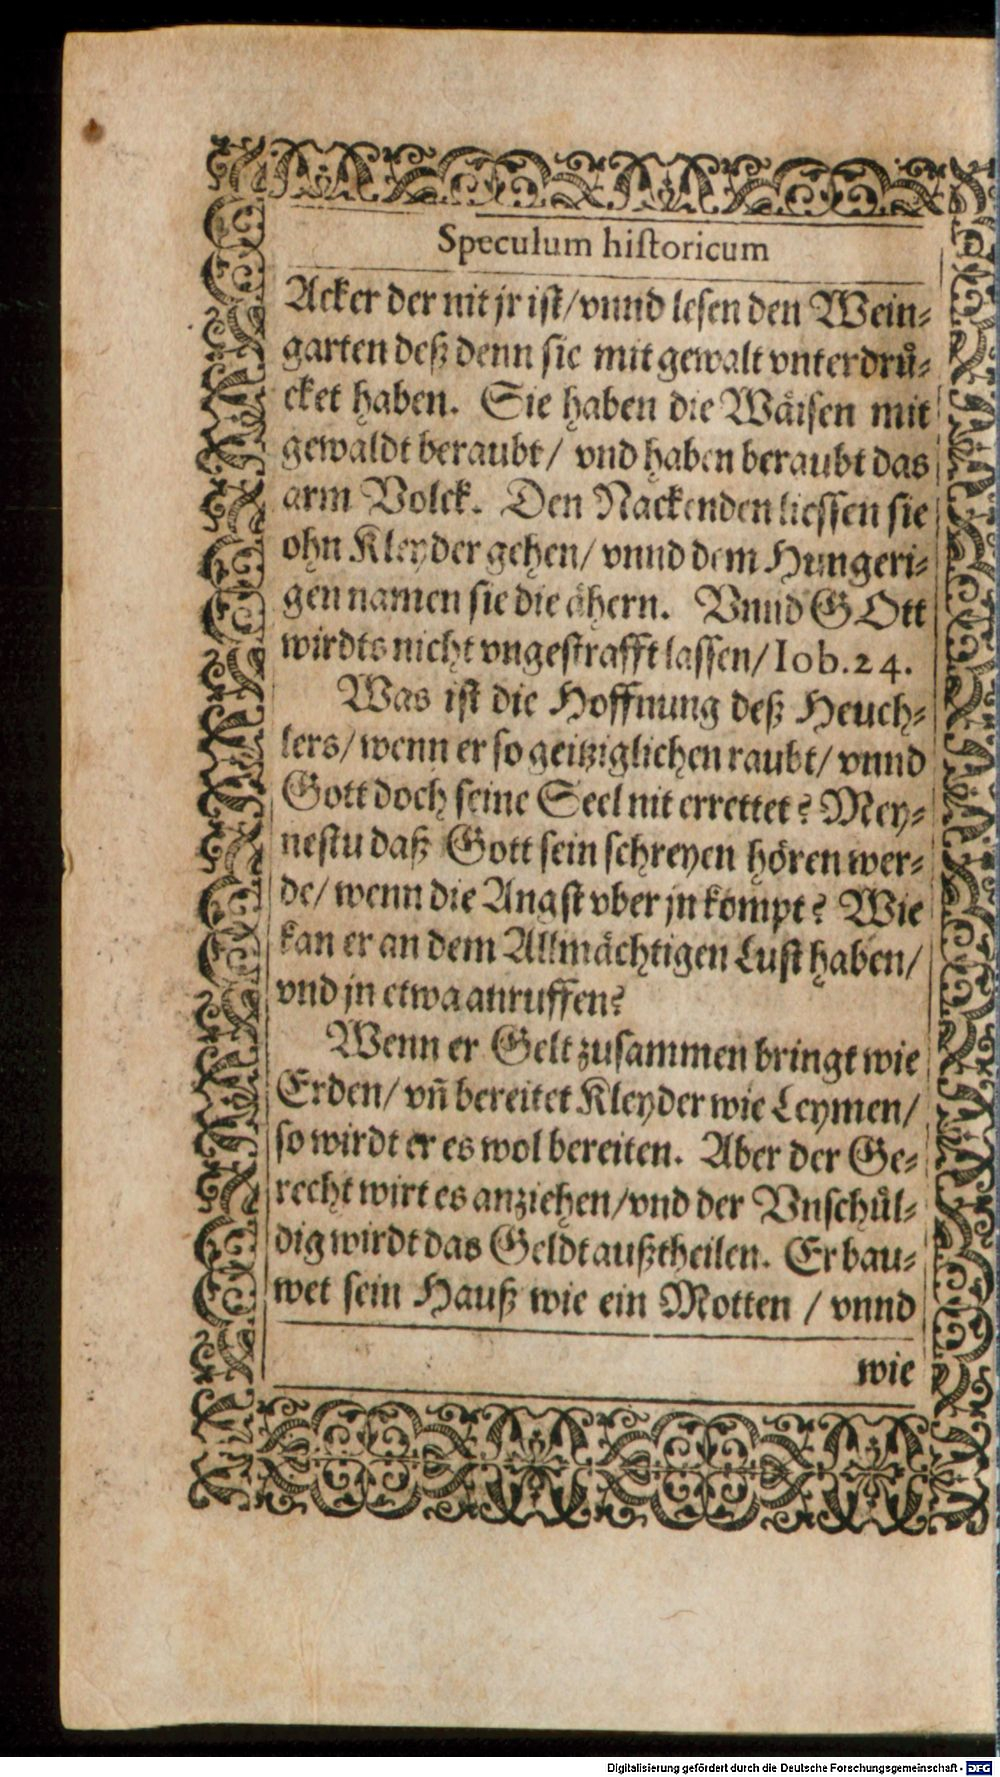 Speculum historicum
Acker der nit jr ist/vnnd lesen den Wein-
garten deß denn sie mit gewalt vnterdruͤ-
cket haben. Sie haben die Waͤisen mit
gewaldt beraubt/ vnd haben beraubt das
arm Volck. Den Nackenden liessen sie
ohn Kleyder gehen/ vnnd dem Hungeri-
gen namen sie die aͤhern. Vnnd GOtt
wirdts nicht vngestrafft lassen/Iob.24.
Was ist die Hoffnung deß Heuch-
lers/wenn er so geitziglichen raubt/ vnnd
Gott doch seine Seel nit errettet? Mey-
nestu daß Gott sein schreyen hoͤren wer-
de/ wenn die Angst vber jn kompt? Wie
kan er an dem Allmaͤchtigen Lust haben/
vnd jn etwa anruffen?
Wenn er Gelt zusammen bringt wie
Erden/ vñ bereitet Kleyder wie Leymen/
so wirdt er es wol bereiten. Aber der Ge-
recht wirt es anziehen/vnd der Vnschuͤl-
dig wirdt das Geldt außtheilen. Er bau-
wet sein Hauß wie ein Motten / vnnd
wie
Digitalisierung gefördert durch die Deutsche Forschungsgemeinschaft - DFG